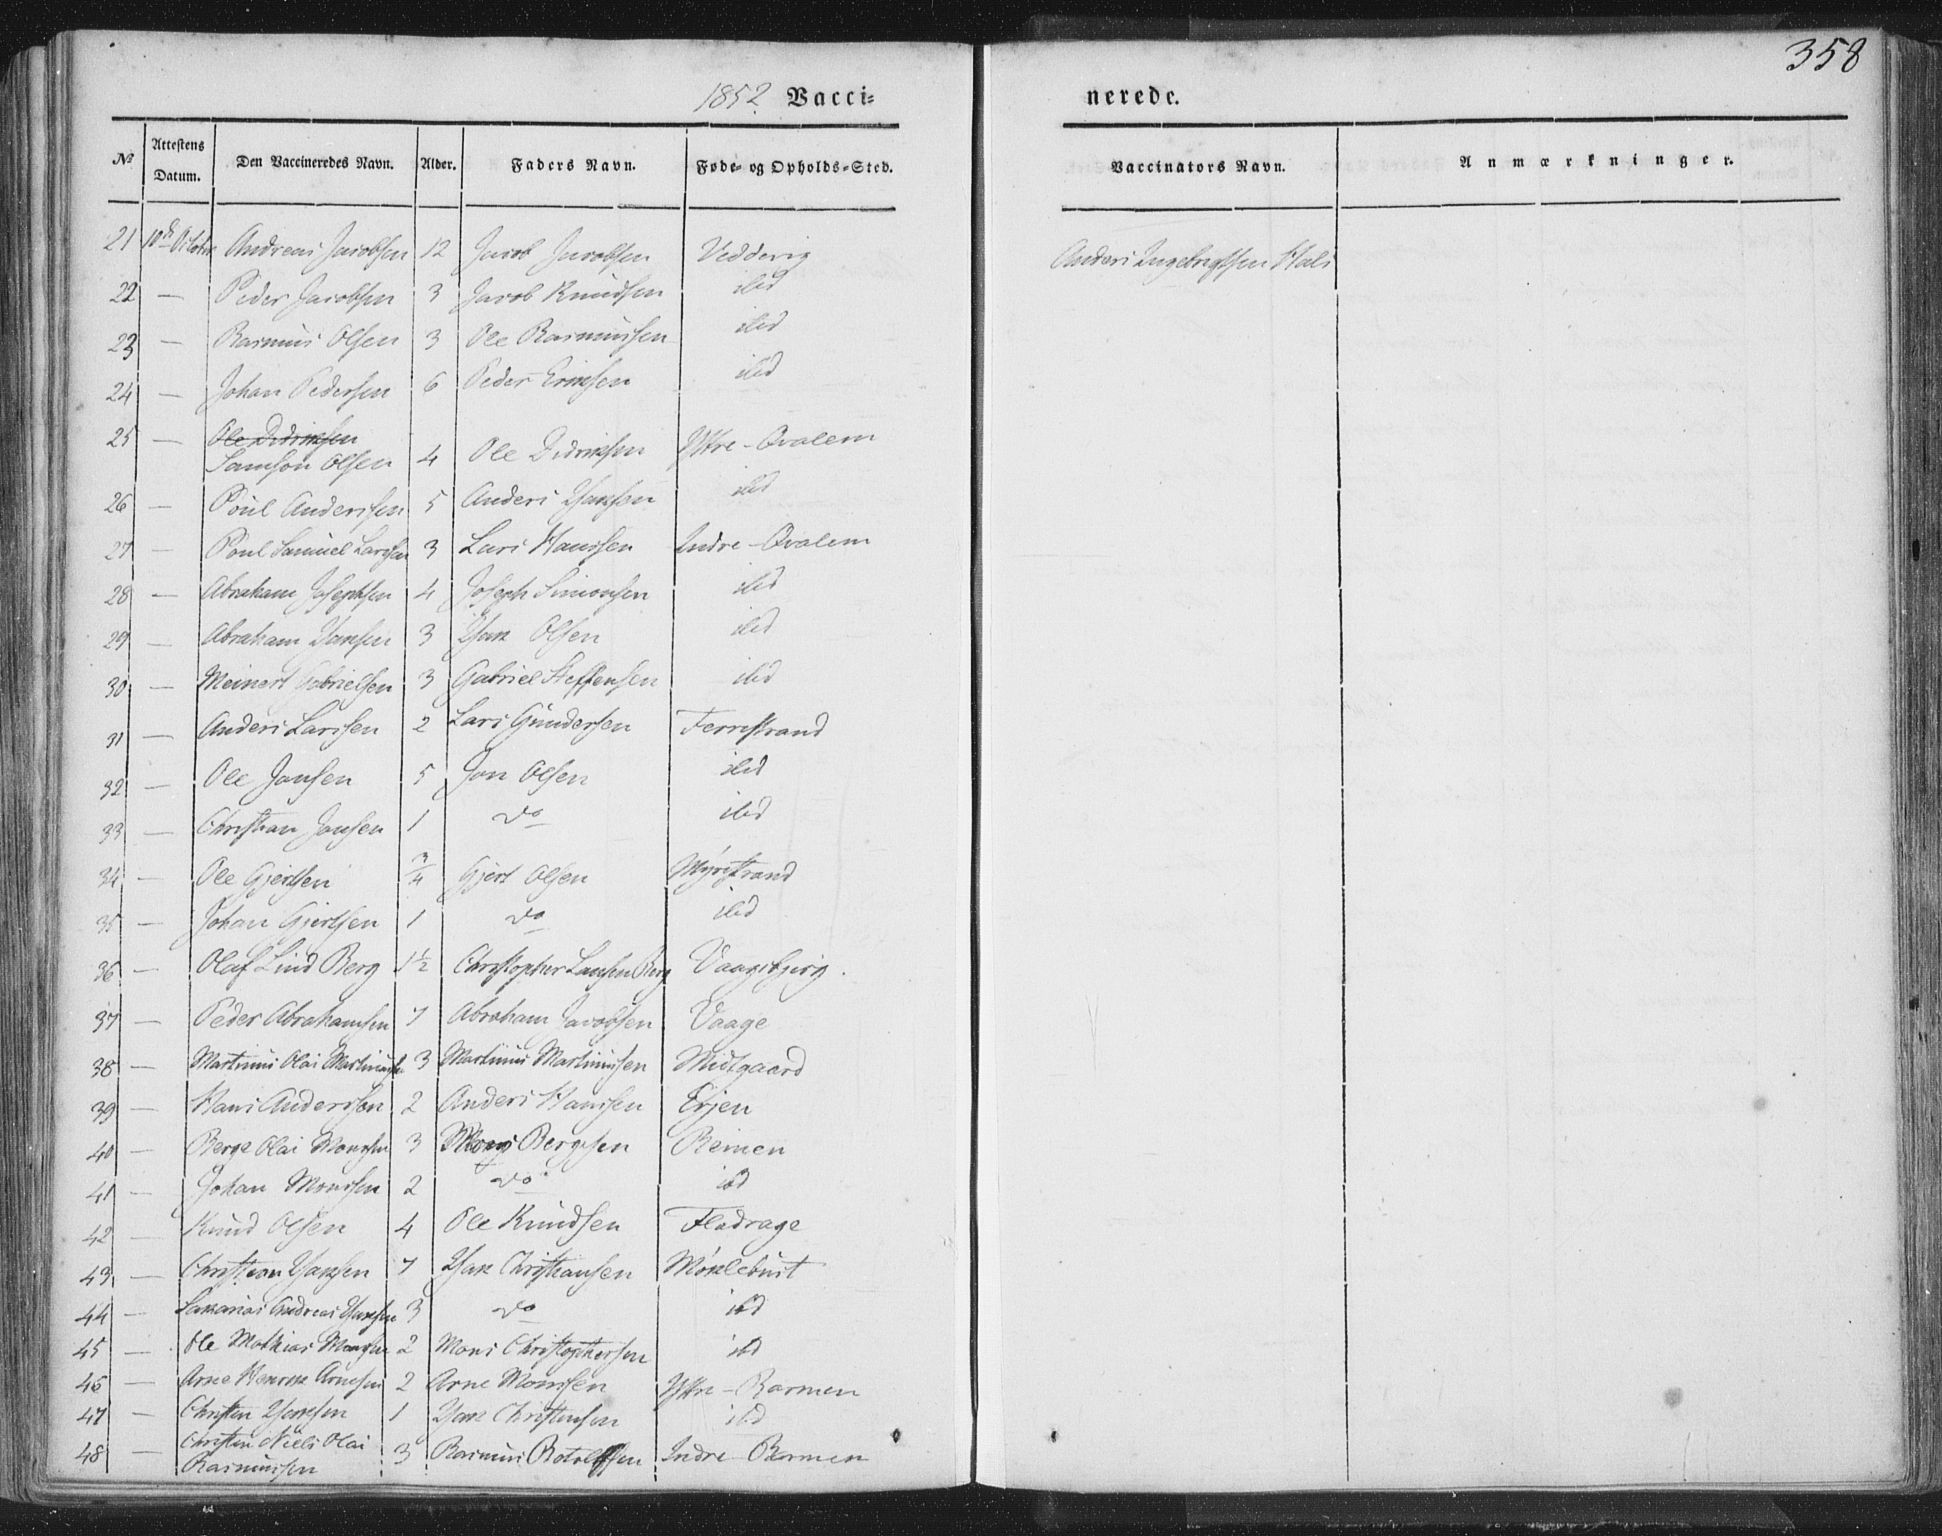 358
1852 Vacci= nerede.
No Attestens Datum. Den Vaccineredes Navn. Alder. Faders Navn. Føde- og Opholds-Sted. Vaccinators Navn. Anmærkninger.
21 10de October Andreas Jacobsen 12 Jacob Jacobsen Vedderig Anders Ingebrigtsen Hals
22 — Peder Jacobsen 3 Jacob Knudsen ibid
23 — Rasmus Olsen 3 Ole Rasmussen ibid
24 — Johan Pedersen 6 Peder Eriksen ibid
25 — Ole Didriksen
Samson Olsen 4 Ole Didriksen Ystre-Qvalem
26 — Poul Andersen 5 Anders Isaksen ibid
27 — Poul Samuel Larssen 3 Lars Hanssen Indre-Qvalem
28 — Abraham Josephsen 4 Joseph Simonsen ibid
29 — Abraham Isaksen 3 Isak Olsen ibid
30 — Meinert Gabrielsen 3 Gabriel Steffensen ibid
31 — Anders Larssen 2 Lars Gundersen Ferrestrand
32 — Ole Jonsen 5 Jon Olsen ibid
33 — Christian Jonsen 1 do ibid
34 — Ole Gjertsen 3/4 Gjert Olsen Myrestrand
35 — Johan Gjertsen 1 do ibid
36 — Olaf Lind Berg 1 1/2 Christopher Berg
37 — Peder Abrahamsen 7 Abraham Jacobsen Vaage
38 — Martinus Olai Martinussen 3 Martinus Martinussen Midtgaard
39 — Hans Anderssen 2 Anders Hanssen Erjen
40 — Berge Olai Monssen 3 Mons Bergesen Reimen
41 — Johan Monssen 2 do ibd
42 — Knud Olsen 4 Ole Knudsen Fladrage
43 — Christian Isaksen 7 Isak Christiansen Møklebust
44 — Sakarias Andreas Isaksen 3 do ibd
45 — Ole Mathias Monssen 2 Mons Christophersen ibd
46 — Arne Henrik Arnesen 2 Arne Monssen Ystre-Barmen
47 — Christen Isaksen 1 Isak Christensen ibd
48 — Christen Niels Olai
Rasmussen 3 Rasmus Rotolfsen Indre-Barmen